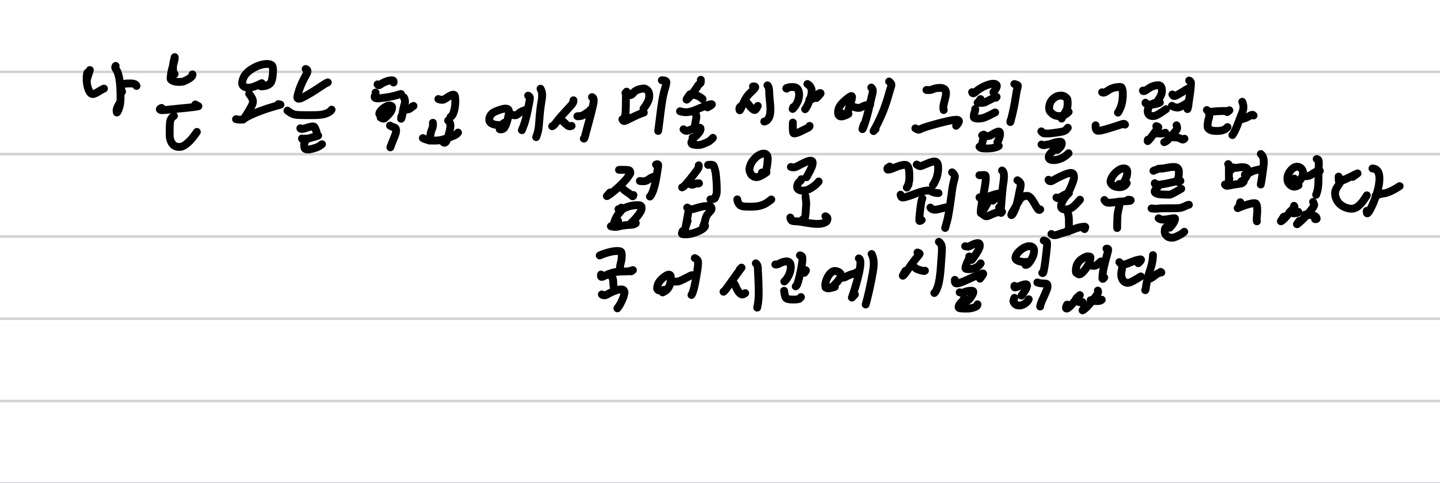 나는 오늘 학교에서 미술시간에 그림을 그렸다
점심으로 꿔바로우를 먹었다
국어시간에 시를 읽었다